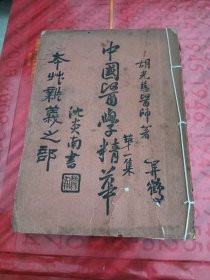 胡光慈醫師著
中國醫學精華
第一集
本艸新義之部
沈炎南書